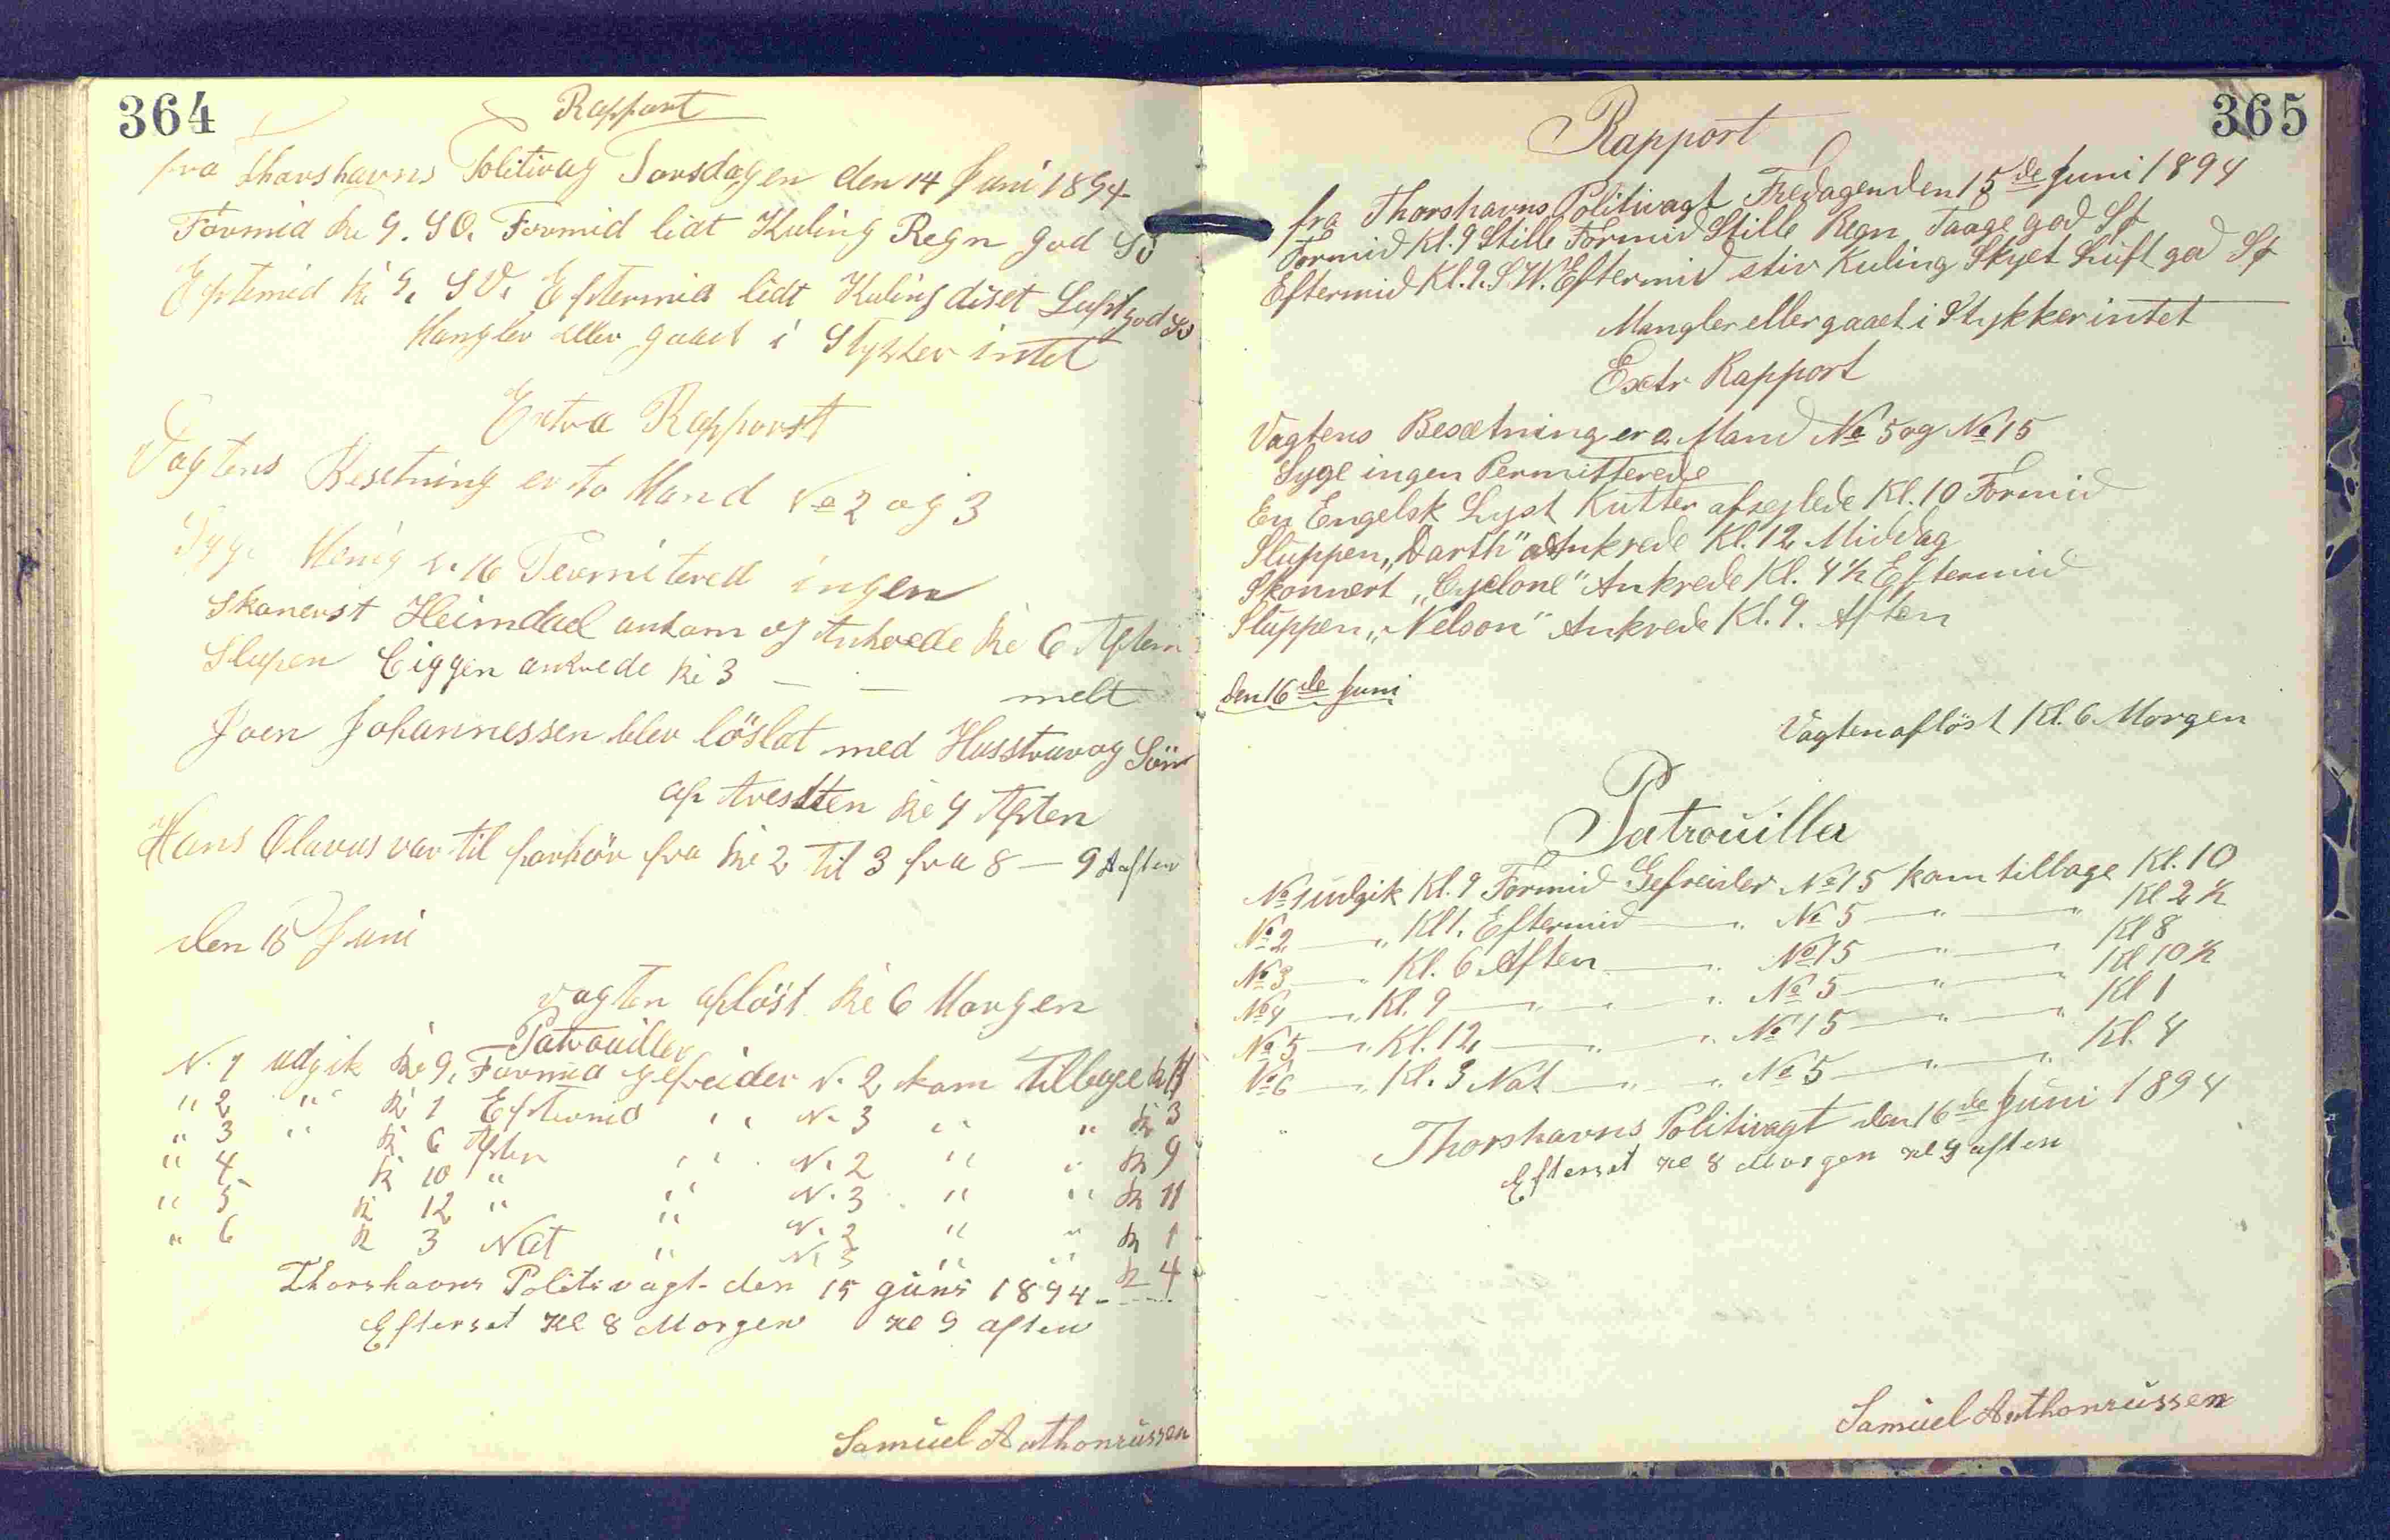 364
Rapport
fra Thorshavns Politivag Torsdagen den 14 Juni 1894
Formid Kl 9. SO. Formid lidt Kuling Regn god Sö
Eftemid Kl 9. SV. Eftermid lidt Kuling diset Luft god Sö
Mangler eller gaaet i Stykker intet
Extra Rapporst
Vagtens Besetning er to Mand No 2 og 3
Syge Menig N. 16 Permitered ingen
Skonerst Heimdad ankom og Ankrede Kl 6 Aftem
Slupen Ciggen ankrede Kl 3 — —
melt
Joen Johannessen blev löslat med Hustru og Sön
af Arestten Kl 9 Aften
Hans Olavus var til forhör fra Kl 2 til 3 fra 8 — 9 Aaften
den 15 Juni
vagten aflöst Kl 6 Morgen
Patrouiller
N. 1 udgik Kl 9. Formid gefreider N. 2 kom tilbage Kl 11
" 2 " Kl 1 Eftermid " N. 3 " " Kl 3
" 3 " Kl 6 Aften " N. 2 " " Kl 9
" 4 Kl 10 " " N. 3 " " Kl 11
" 5 Kl 12 " " N. 2 " " Kl 1
" 6 Kl 3 Nat " N. 3 " " Kl 4
Thorshavns Politivagt den 15 guni 1894
Efterset Kl 8 Morgen Kl 9 aften
Samuel Anthoniussen
365
Rapport
fra Thorshavns Politivagt Fredagen den 15de Juni 1894
Formid Kl. 9 Stille Formid Stille Regn Taage god Sø
Eftermid Kl. 9. S.W. Eftermid stiv Kuling Skyet Luft god Sø
Mangler eller gaaet i Stykker intet
Extr Rapport
Vagtens Besætning er 2 Mand No 5 og No 15
Syge ingen Permitterede
En Engelsk Lyst Kutter afsejlede Kl. 10 Formid
Sluppen „Darth" Ankrede Kl. 12 Middag
Skonnert „Cyclone" Ankrede Kl. 4½ Eftermid
Sluppen „Nelson" Ankrede Kl. 9. Aften
den 16de Juni
Vagten aflöst Kl. 6 Morgen
Patrouiller
No 1 udgik Kl. 9 Formid Gefreider No 15 kom tilbage Kl. 10
No 2 — " Kl 1. Eftermid — " No 5 — " — " Kl 2½
No 3 — " Kl. 6 Aften — " No 15 — " — " Kl 8
No 4 — " Kl. 9 — " — " No 5 — " — " Kl 10½
No 5 — " Kl. 12 — " — " No 15 — " — " Kl 1
No 6 — " Kl. 3 Nat — " — " No 5 — " — " Kl. 4
Thorshavns Politivagt den 16de Juni 1894
Efterset Kl 8 Morgen Kl 9 aften
Samuel Anthoniussen